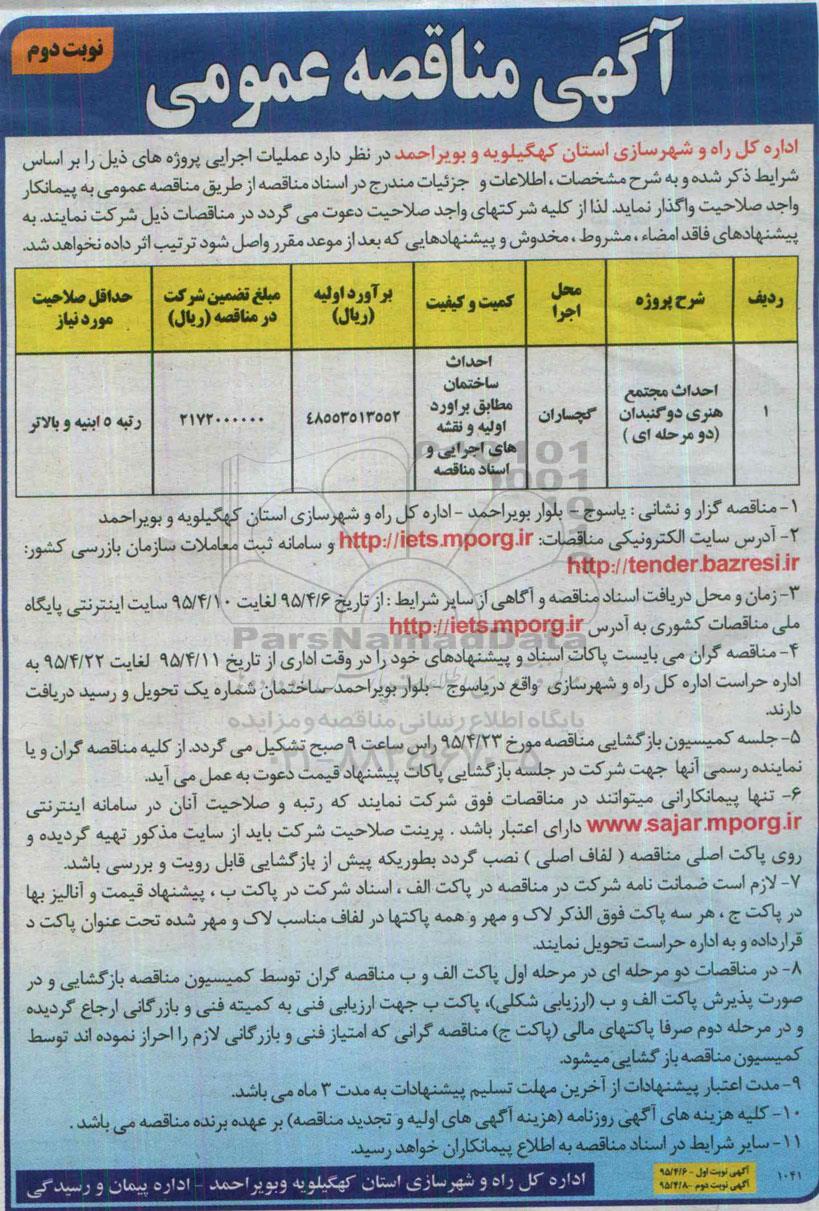 نوبت دوم
آگهی مناقصه عمومی
اداره کل راه و شهرسازی استان کهگیلویه و بویراحمد در نظر دارد عملیات اجرایی پروژه های ذیل را بر اساس
شرایط ذکر شده و به شرح مشخصات ، اطلاعات و جزئیات مندرج در اسناد مناقصه از طریق مناقصه عمومی به پیمانکار
واجد صلاحیت واگذار نماید. لذا از کلیه شرکتهای واجد صلاحیت دعوت می گردد در مناقصات ذیل شرکت نمایند. به
پیشنهادهای فاقد امضاء ، مشروط ، مخدوش و پیشنهادهایی که بعد از موعد مقرر واصل شود ترتیب اثر داده نخواهد شد.
ردیف
شرح پروژه
محل
اجرا
کمیت و کیفیت
برآورد اولیه
(ریال)
مبلغ تضمین شرکت
در مناقصه (ریال)
حداقل صلاحیت
مورد نیاز
۱
احداث مجتمع
هنری دوگنبدان
(دو مرحله ای )
گچساران
احداث
ساختمان
مطابق براورد
اولیه و نقشه
های اجرایی و
اسناد مناقصه
۴۸۵۵۳۵۱۳۵۵۲
۲۱۷۲۰۰۰۰۰۰
رتبه ۵ ابنیه و بالاتر
۱- مناقصه گزار و نشانی : یاسوج - بلوار بویراحمد - اداره کل راه و شهرسازی استان کهگیلویه و بویراحمد
۲- آدرس سایت الکترونیکی مناقصات: http://iets.mporg.ir و سامانه ثبت معاملات سازمان بازرسی کشور:
http://tender.bazresi.ir
۳- زمان و محل دریافت اسناد مناقصه و آگاهی از سایر شرایط : از تاریخ ۹۵/۴/۶ لغایت ۹۵/۴/۱۰ سایت اینترنتی پایگاه
ملی مناقصات کشوری به آدرس http://iets.mporg.ir
ParsNamadData
۴- مناقصه گران می بایست پاکات اسناد و پیشنهادهای خود را در وقت اداری از تاریخ ۹۵/۴/۱۱ لغایت ۹۵/۴/۲۲ به
اداره حراست اداره کل راه و شهرسازی واقع در یاسوج - بلوار بویراحمد-ساختمان شماره یک تحویل و رسید دریافت
دارند.
پایگاه اطلاع رسانی مناقصه و مزایده
۵- جلسه کمیسیون بازگشایی مناقصه مورخ ۹۵/۴/۲۳ راس ساعت ۹ صبح تشکیل می گردد. از کلیه مناقصه گران و یا
نماینده رسمی آنها جهت شرکت در جلسه بازگشایی پاکات پیشنهاد قیمت دعوت به عمل می آید.
۶- تنها پیمانکارانی میتوانند در مناقصات فوق شرکت نمایند که رتبه و صلاحیت آنان در سامانه اینترنتی
www.sajar.mporg.ir دارای اعتبار باشد . پرینت صلاحیت شرکت باید از سایت مذکور تهیه گردیده و
روی پاکت اصلی مناقصه ( لفاف اصلی ) نصب گردد بطوریکه پیش از بازگشایی قابل رویت و بررسی باشد.
۷- لازم است ضمانت نامه شرکت در مناقصه در پاکت الف ، اسناد شرکت در پاکت ب ، پیشنهاد قیمت و آنالیز بها
در پاکت ج ، هر سه پاکت فوق الذکر لاک و مهر و همه پاکتها در لفاف مناسب لاک و مهر شده تحت عنوان پاکت د
قرارداده و به اداره حراست تحویل نمایند.
۸- در مناقصات دو مرحله ای در مرحله اول پاکت الف و ب مناقصه گران توسط کمیسیون مناقصه بازگشایی و در
صورت پذیرش پاکت الف و ب (ارزیابی شکلی)، پاکت ب جهت ارزیابی فنی به کمیته فنی و بازرگانی ارجاع گردیده
و در مرحله دوم صرفا پاکتهای مالی (پاکت ج) مناقصه گرانی که امتیاز فنی و بازرگانی لازم را احراز نموده اند توسط
کمیسیون مناقصه باز گشایی میشود.
۹- مدت اعتبار پیشنهادات از آخرین مهلت تسلیم پیشنهادات به مدت ۳ ماه می باشد.
۱۰- کلیه هزینه های آگهی روزنامه (هزینه آگهی های اولیه و تجدید مناقصه) بر عهده برنده مناقصه می باشد .
۱۱- سایر شرایط در اسناد مناقصه به اطلاع پیمانکاران خواهد رسید.
۱۰۴۱
آگهی نوبت اول - ۹۵/۴/۶
آگهی نوبت دوم - ۹۵/۴/۸
اداره کل راه و شهرسازی استان کهگیلویه وبویراحمد - اداره پیمان و رسیدگی